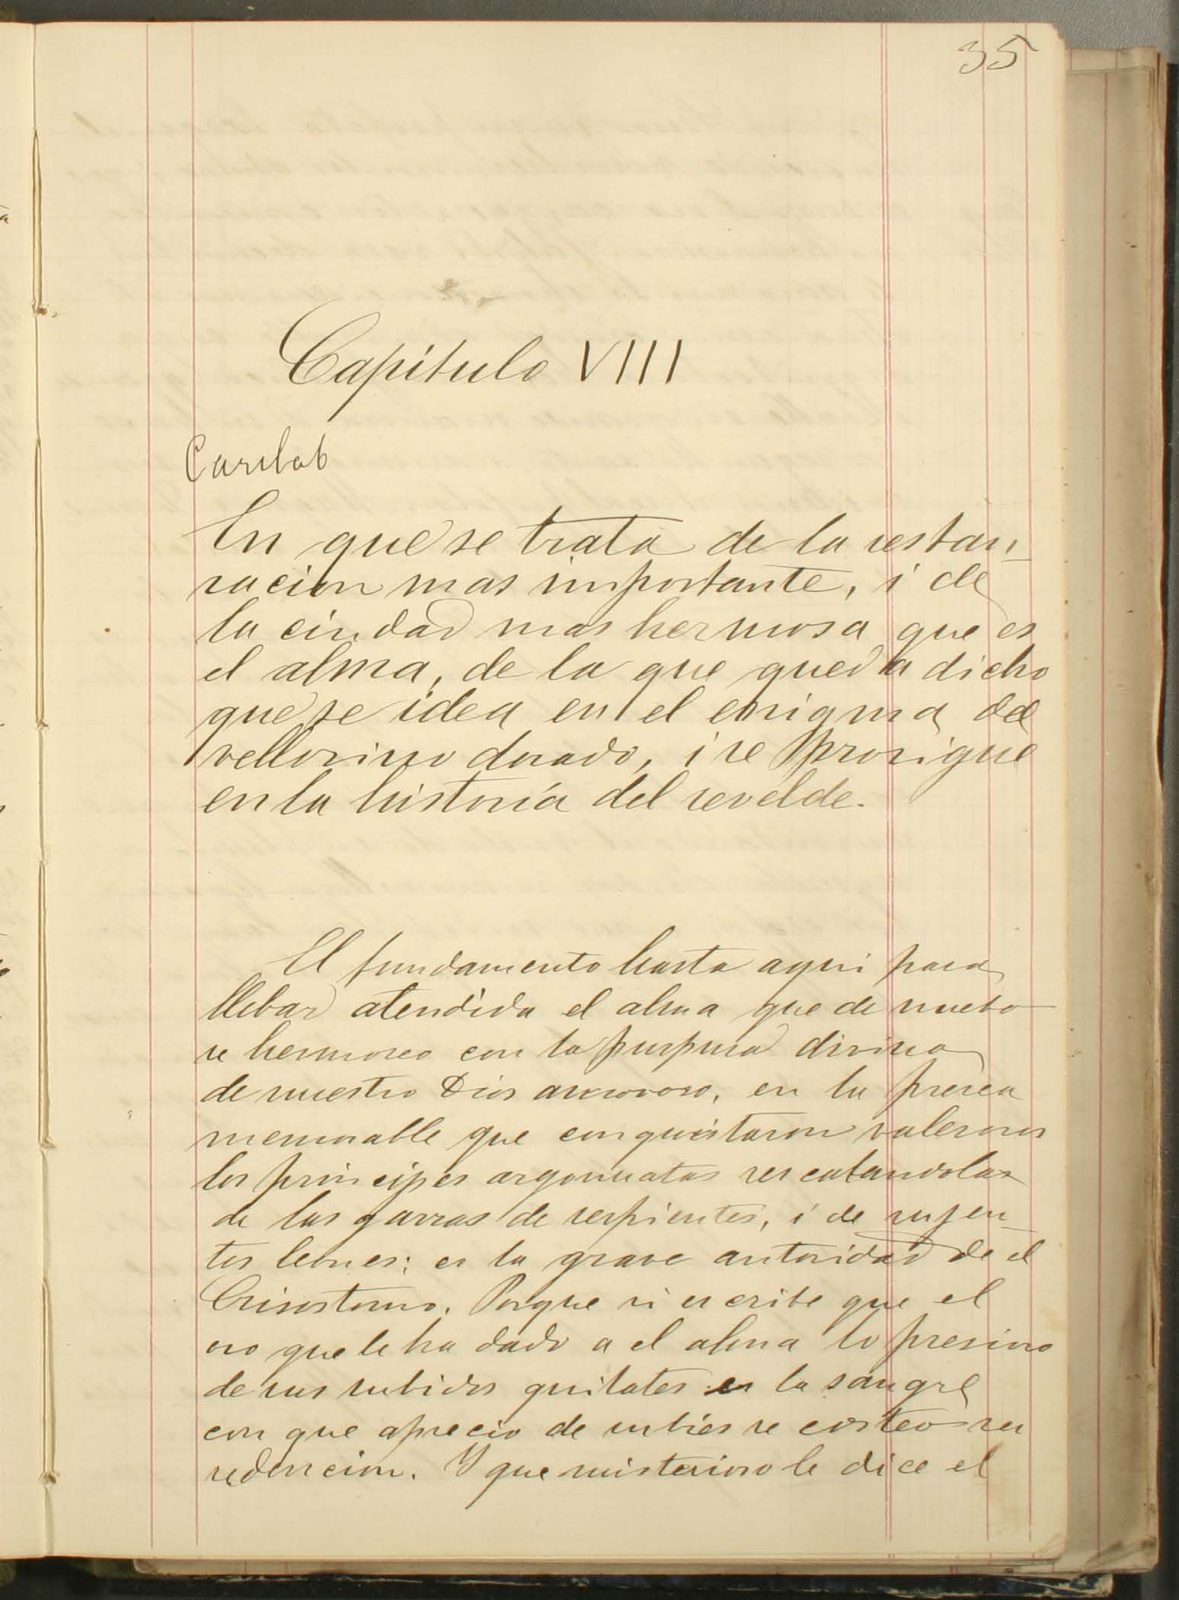 35
Capitulo VIII
En que se trata de la restau-
racion mas importante, i de
la ciudad mas hermosa que es
el alma, de la que queda dicho
que se idea en el enigma del
vellosino dorado, i se prosigue
en la historia del revelde.
El fundamento hasta aqui para
llebar atendida el alma que de nuebo
se hermoseo con la purpura divina
de nuestro Dios amoroso, en la presea
memorable que conquistaron valerosos
los principes argonautas rescatandolas
de las garras de serpientes, i de
tos leones; es la grave autoridad de el
Crisostomo. Porque si escribe que el
oro que le ha dado a el alma lo presioso
de sus subidos quilates es la sangre
con que aprecio de rubies se costeo su
redencion. Y que misterioso le dice el